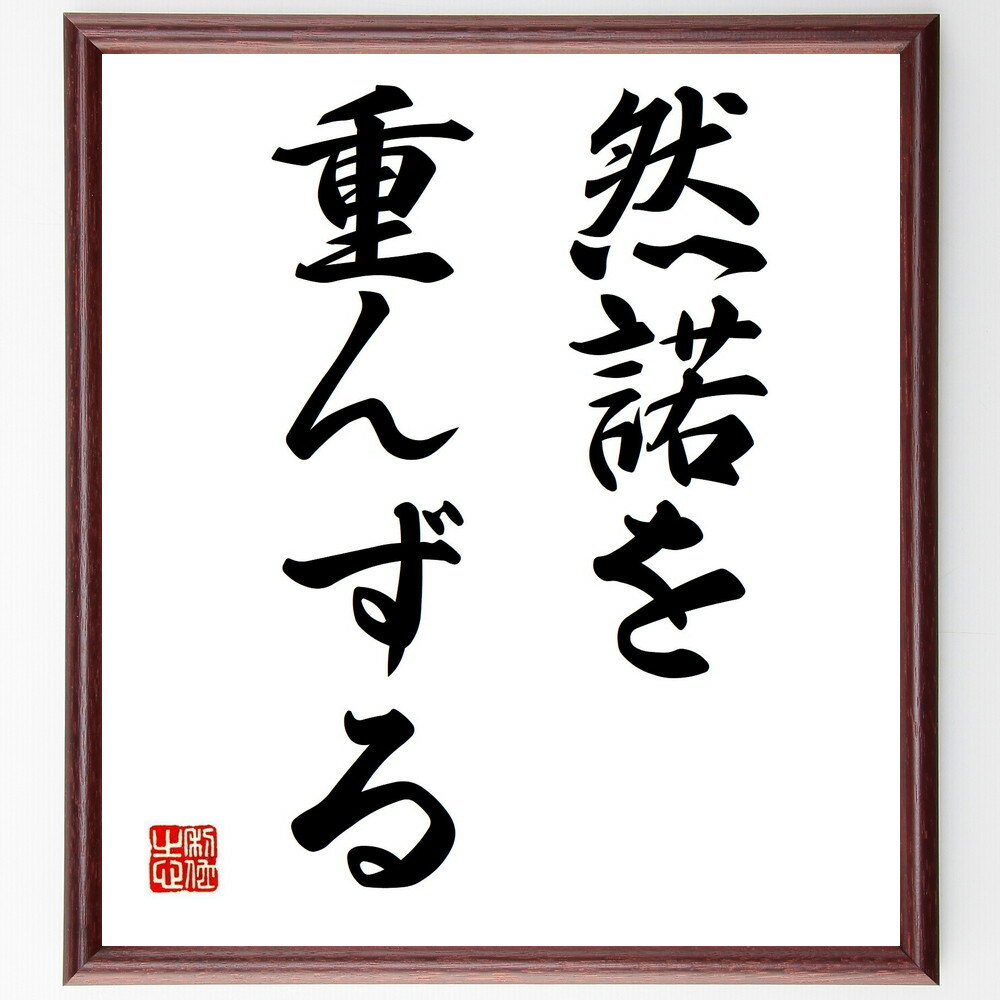 然諾を
重んずる